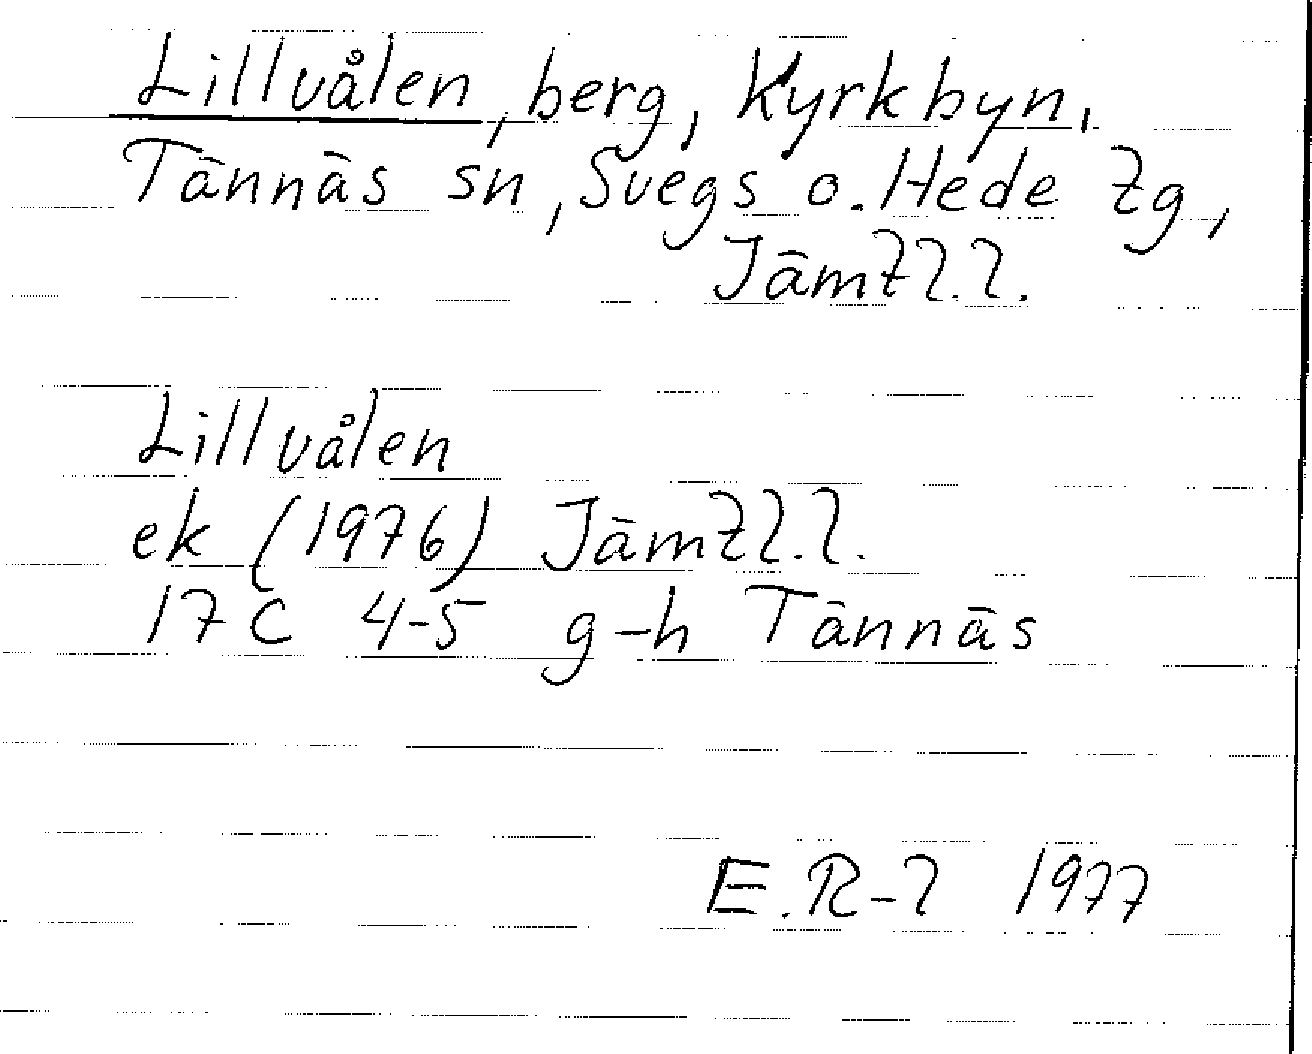 Lillvålen, berg, Kyrkbyn,
Tännäs sn, Svegs o. Hede tg,
Jämtl. l.
Lillvålen
ek (1976) Jämtl. l.
17C 4-5 g-h Tännäs
E.R-l 1977